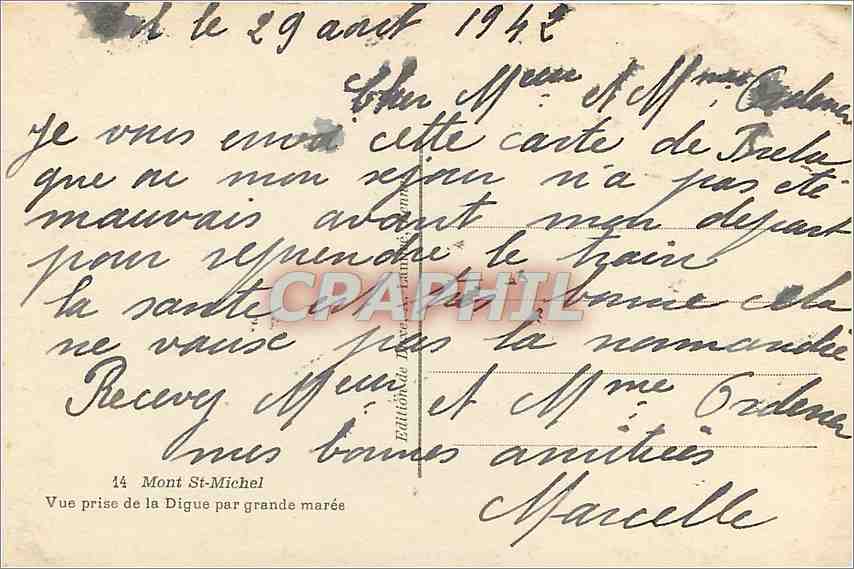 le 29 aout 1942
Cher Meur et Mme Ordener
Je vous envoi cette carte de Breta
gne ou mon sejour n'a pas été
mauvais avant mon depart
pour reprendre le train
la santé est très bonne cela
ne vause pas la normandie
Recevez Meur et Mme Ordener
mes bonnes amitiés
Marcelle
14 Mont St-Michel
Vue prise de la Digue par grande marée
Edition de
CPARPHIL